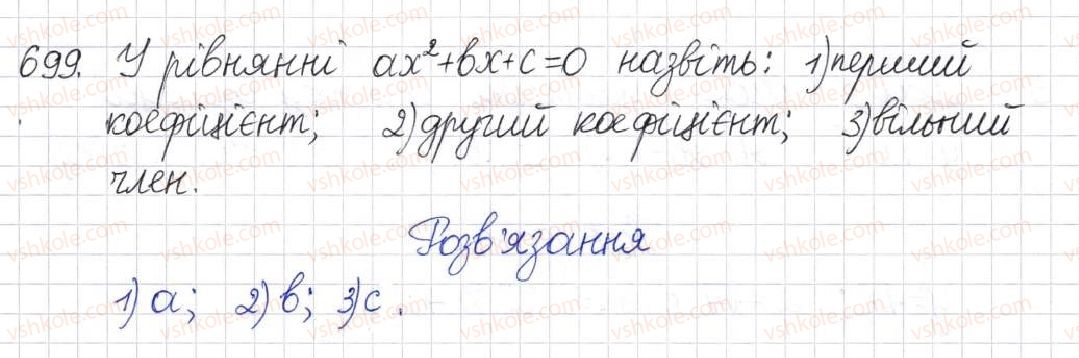 699. У рівнянні ax²+bx+c=0 назвіть: 1) перший
коефіцієнт; 2) другий коефіцієнт; 3) вільний
член.
Розв'язання
1) a; 2) b; 3) c.